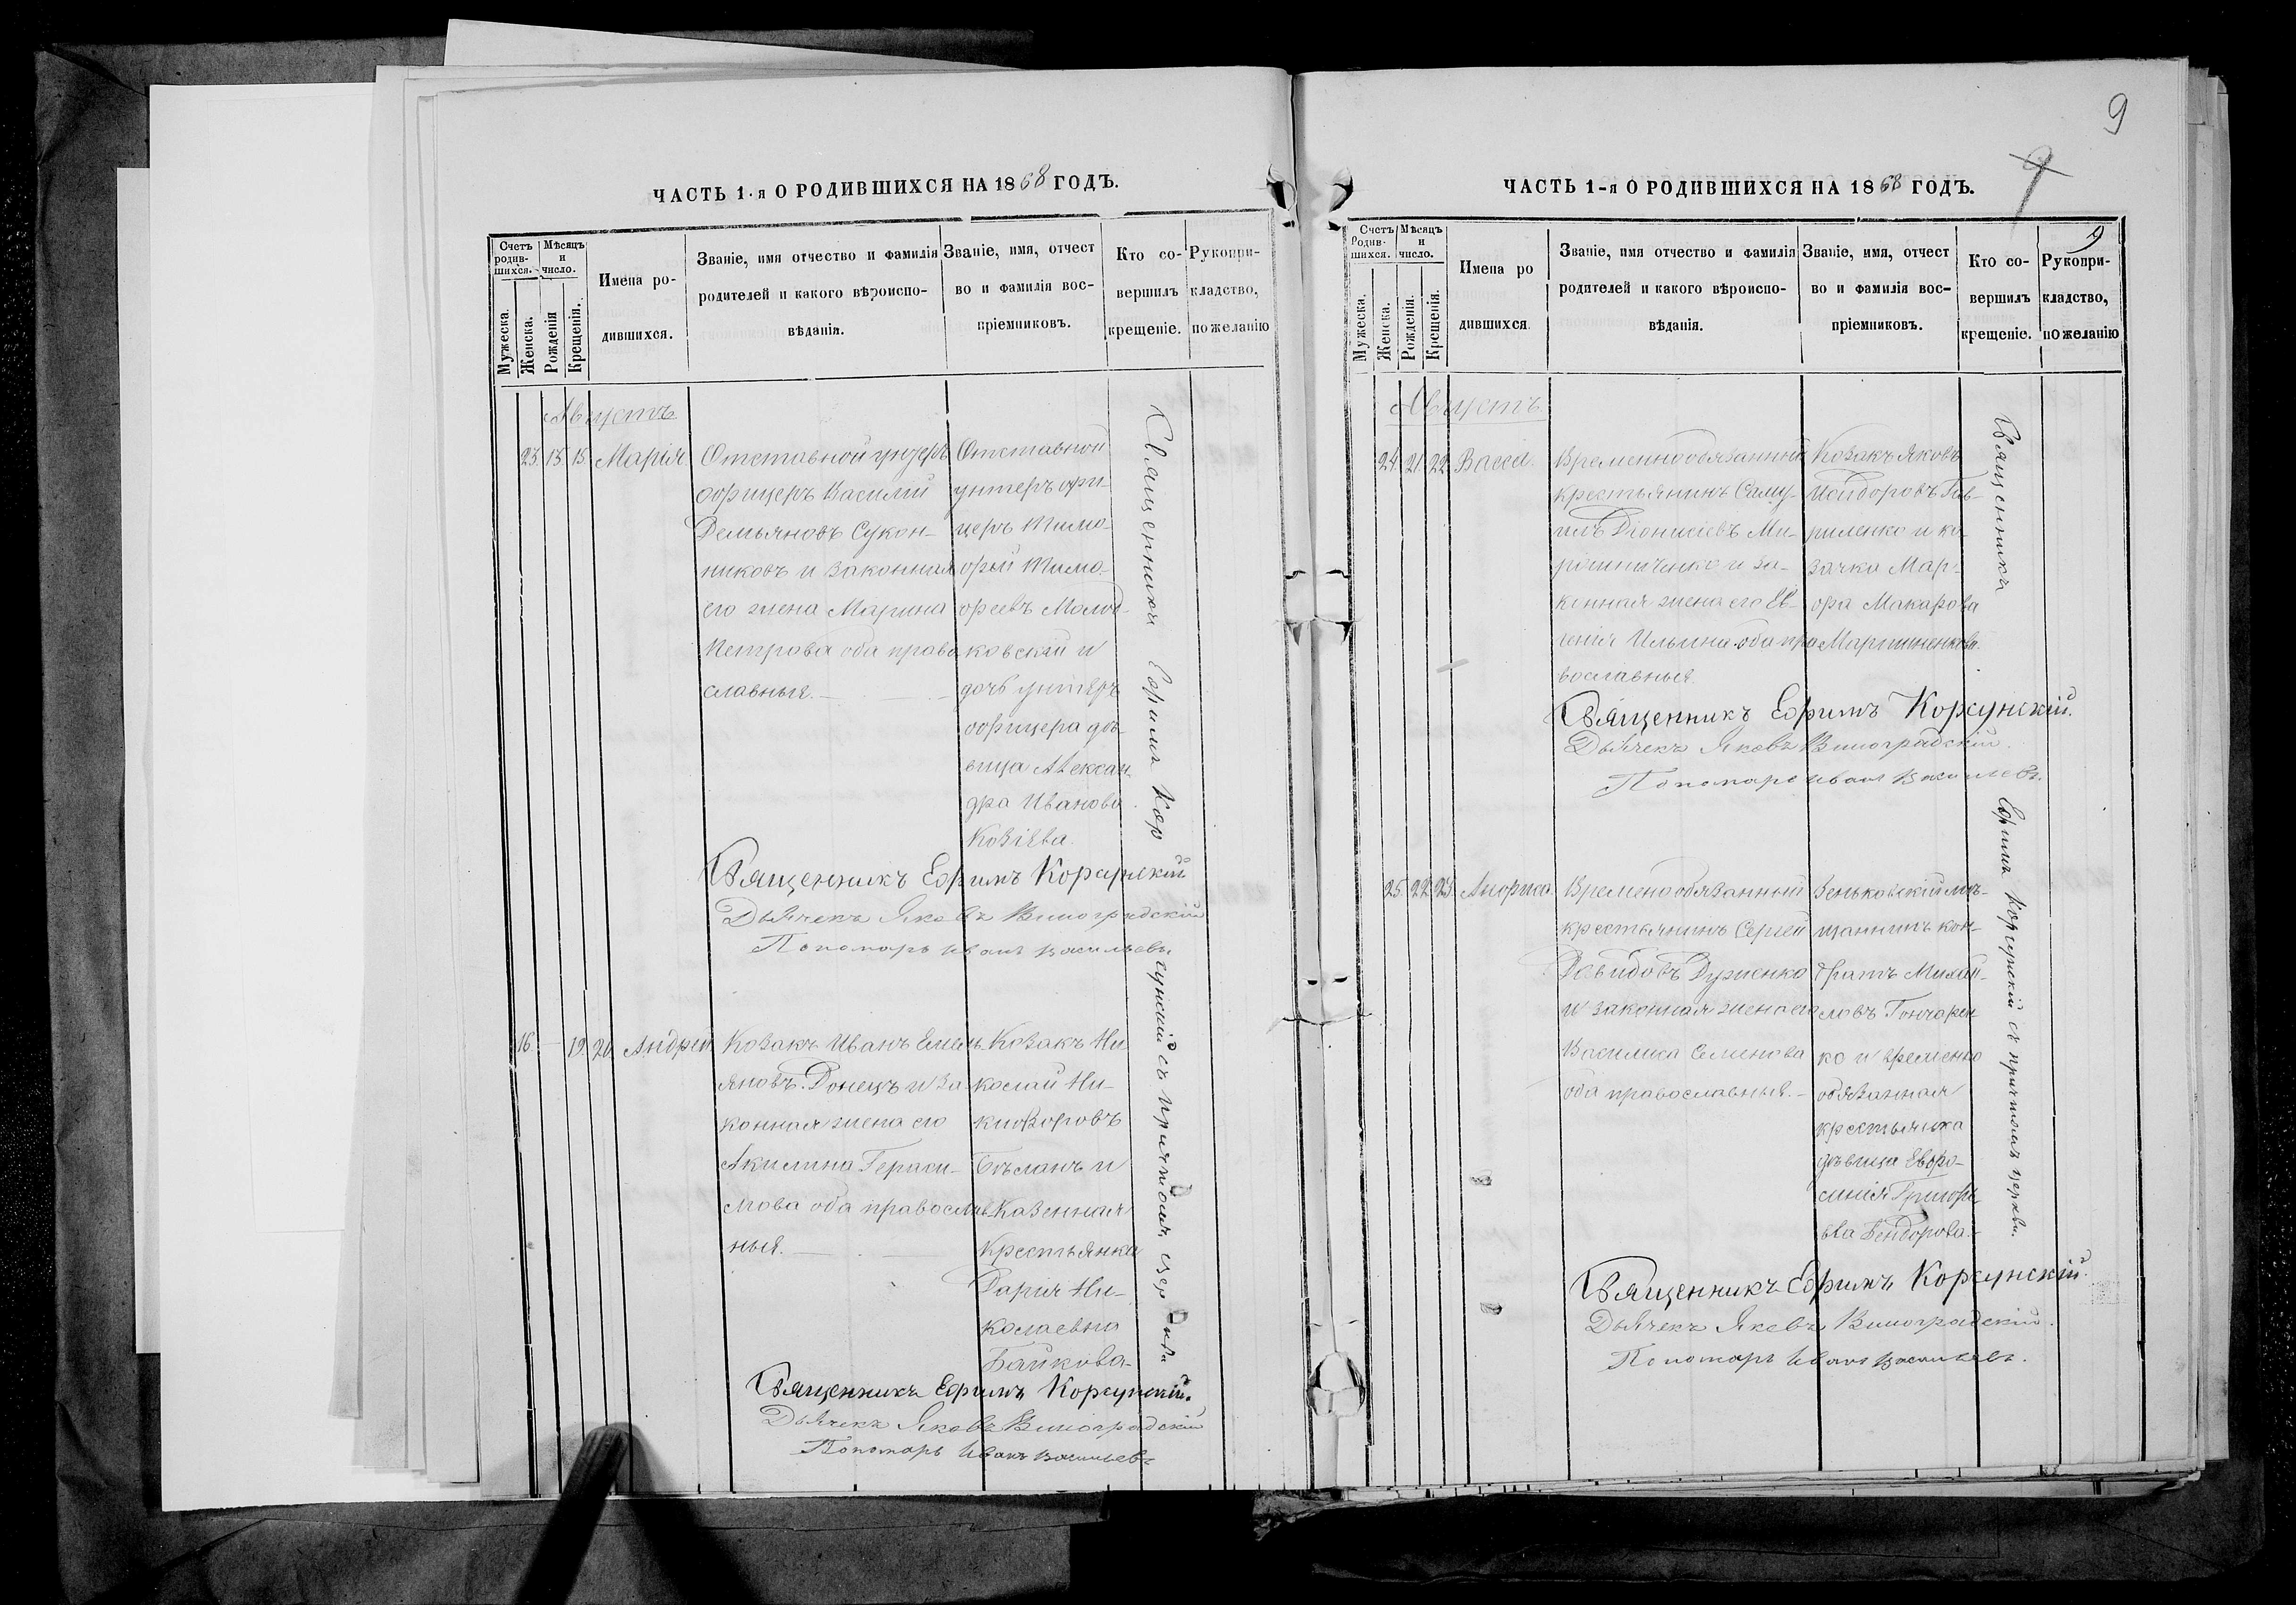 ЧАСТЬ 1-я О РОДИВШИХСЯ НА 1868 ГОДЪ.
Счетъ родив- шихся.
Мѣсяцъ и число.
Мужеска.
Женска.
Рожденія
Крещенія.
Имена ро-
дившихся.
Званіе, имя отчество и фамилія
родителей и какого вѣроиспо-
вѣданія.
Званіе, имя, отчест
во и фамилія вос-
пріемниковъ.
Кто со-
вершилъ
крещеніе.
Рукопри-
кладство,
по желанію
Августъ
23. 15. 15. Марія
Отставной унтеръ
офицеръ Василій
Демьяновъ Сукон-
никовъ и законная
его жена Марина
Петрова оба право
славныя.
Отставной
унтеръ офи-
церъ Тимо-
фей Тимо-
феевъ
ковскій и
дочь унтеръ
офицера дѣ-
вица Алексан-
дра Иванова
Священникъ Ефимъ Кор
сунскій съ причтомъ церкви
Священникъ Ефимъ Корсунскій
Дьячекъ Яковъ Виноградскій
Пономарь Иванъ Васильевъ
16. — 19. 20. Андрей
Козакъ Иванъ Емель-
яновъ Донецъ и за-
конная жена его
Акилина Гераси-
мова оба православ-
ныя.
Козакъ Ни-
колай Ни-
кифоровъ
и
Казенная
Крестьянка
Дарія Ни-
колаевна
Байкова
Священникъ Ефимъ Корсунскій.
Дьячекъ Яковъ Виноградскій
Пономарь Иванъ Васильевъ
9
ЧАСТЬ 1-я О РОДИВШИХСЯ НА 1868 ГОДЪ.
9
Счетъ Родив- шихся.
Мѣсяцъ и число.
Мужеска.
Женска.
Рожденія.
Крещенія.
Имена ро
дившихся.
Званіе, имя отчество и фамилія
родителей и какого вѣроиспо-
вѣданія.
Званіе, имя, отчест
во и фамилія вос-
пріемниковъ.
Кто со-
вершилъ
крещеніе.
Рукопри-
кладство,
по желанію
Августъ
24. 21. 22. Васса.
Временнообязанный
крестьянинъ Саму-
илъ Діонисіевъ Ми-
рошниченко и за-
конная жена его Ев-
генія Ильина оба пра
вославныя.
Козакъ Яковъ
Исидоровъ Гав-
риленко и ко
зачка Мар-
фа Макарова
Мартиненкова.
Священникъ
Ефимъ Корсунскій съ причтомъ церкви.
Священникъ Ефимъ Корсунскій.
Дьячекъ Яковъ Виноградскій.
Пономарь Иванъ Васильевъ.
25. 22. 23. Анфиса.
Временобязанный
крестьянинъ Сергей
Давидовъ
и законная жена его
Василиса Семенова
оба православныя.
Зеньковскій мѣ-
щанинъ Кон-
дратъ Михай-
ловъ Гончарен
ко и временно
обязанная
крестьянка
дѣвица Евфро-
синія Григорь
ева
Священникъ Ефимъ Корсунскій.
Дьячекъ Яковъ Виноградскій.
Пономарь Иванъ Васильевъ.